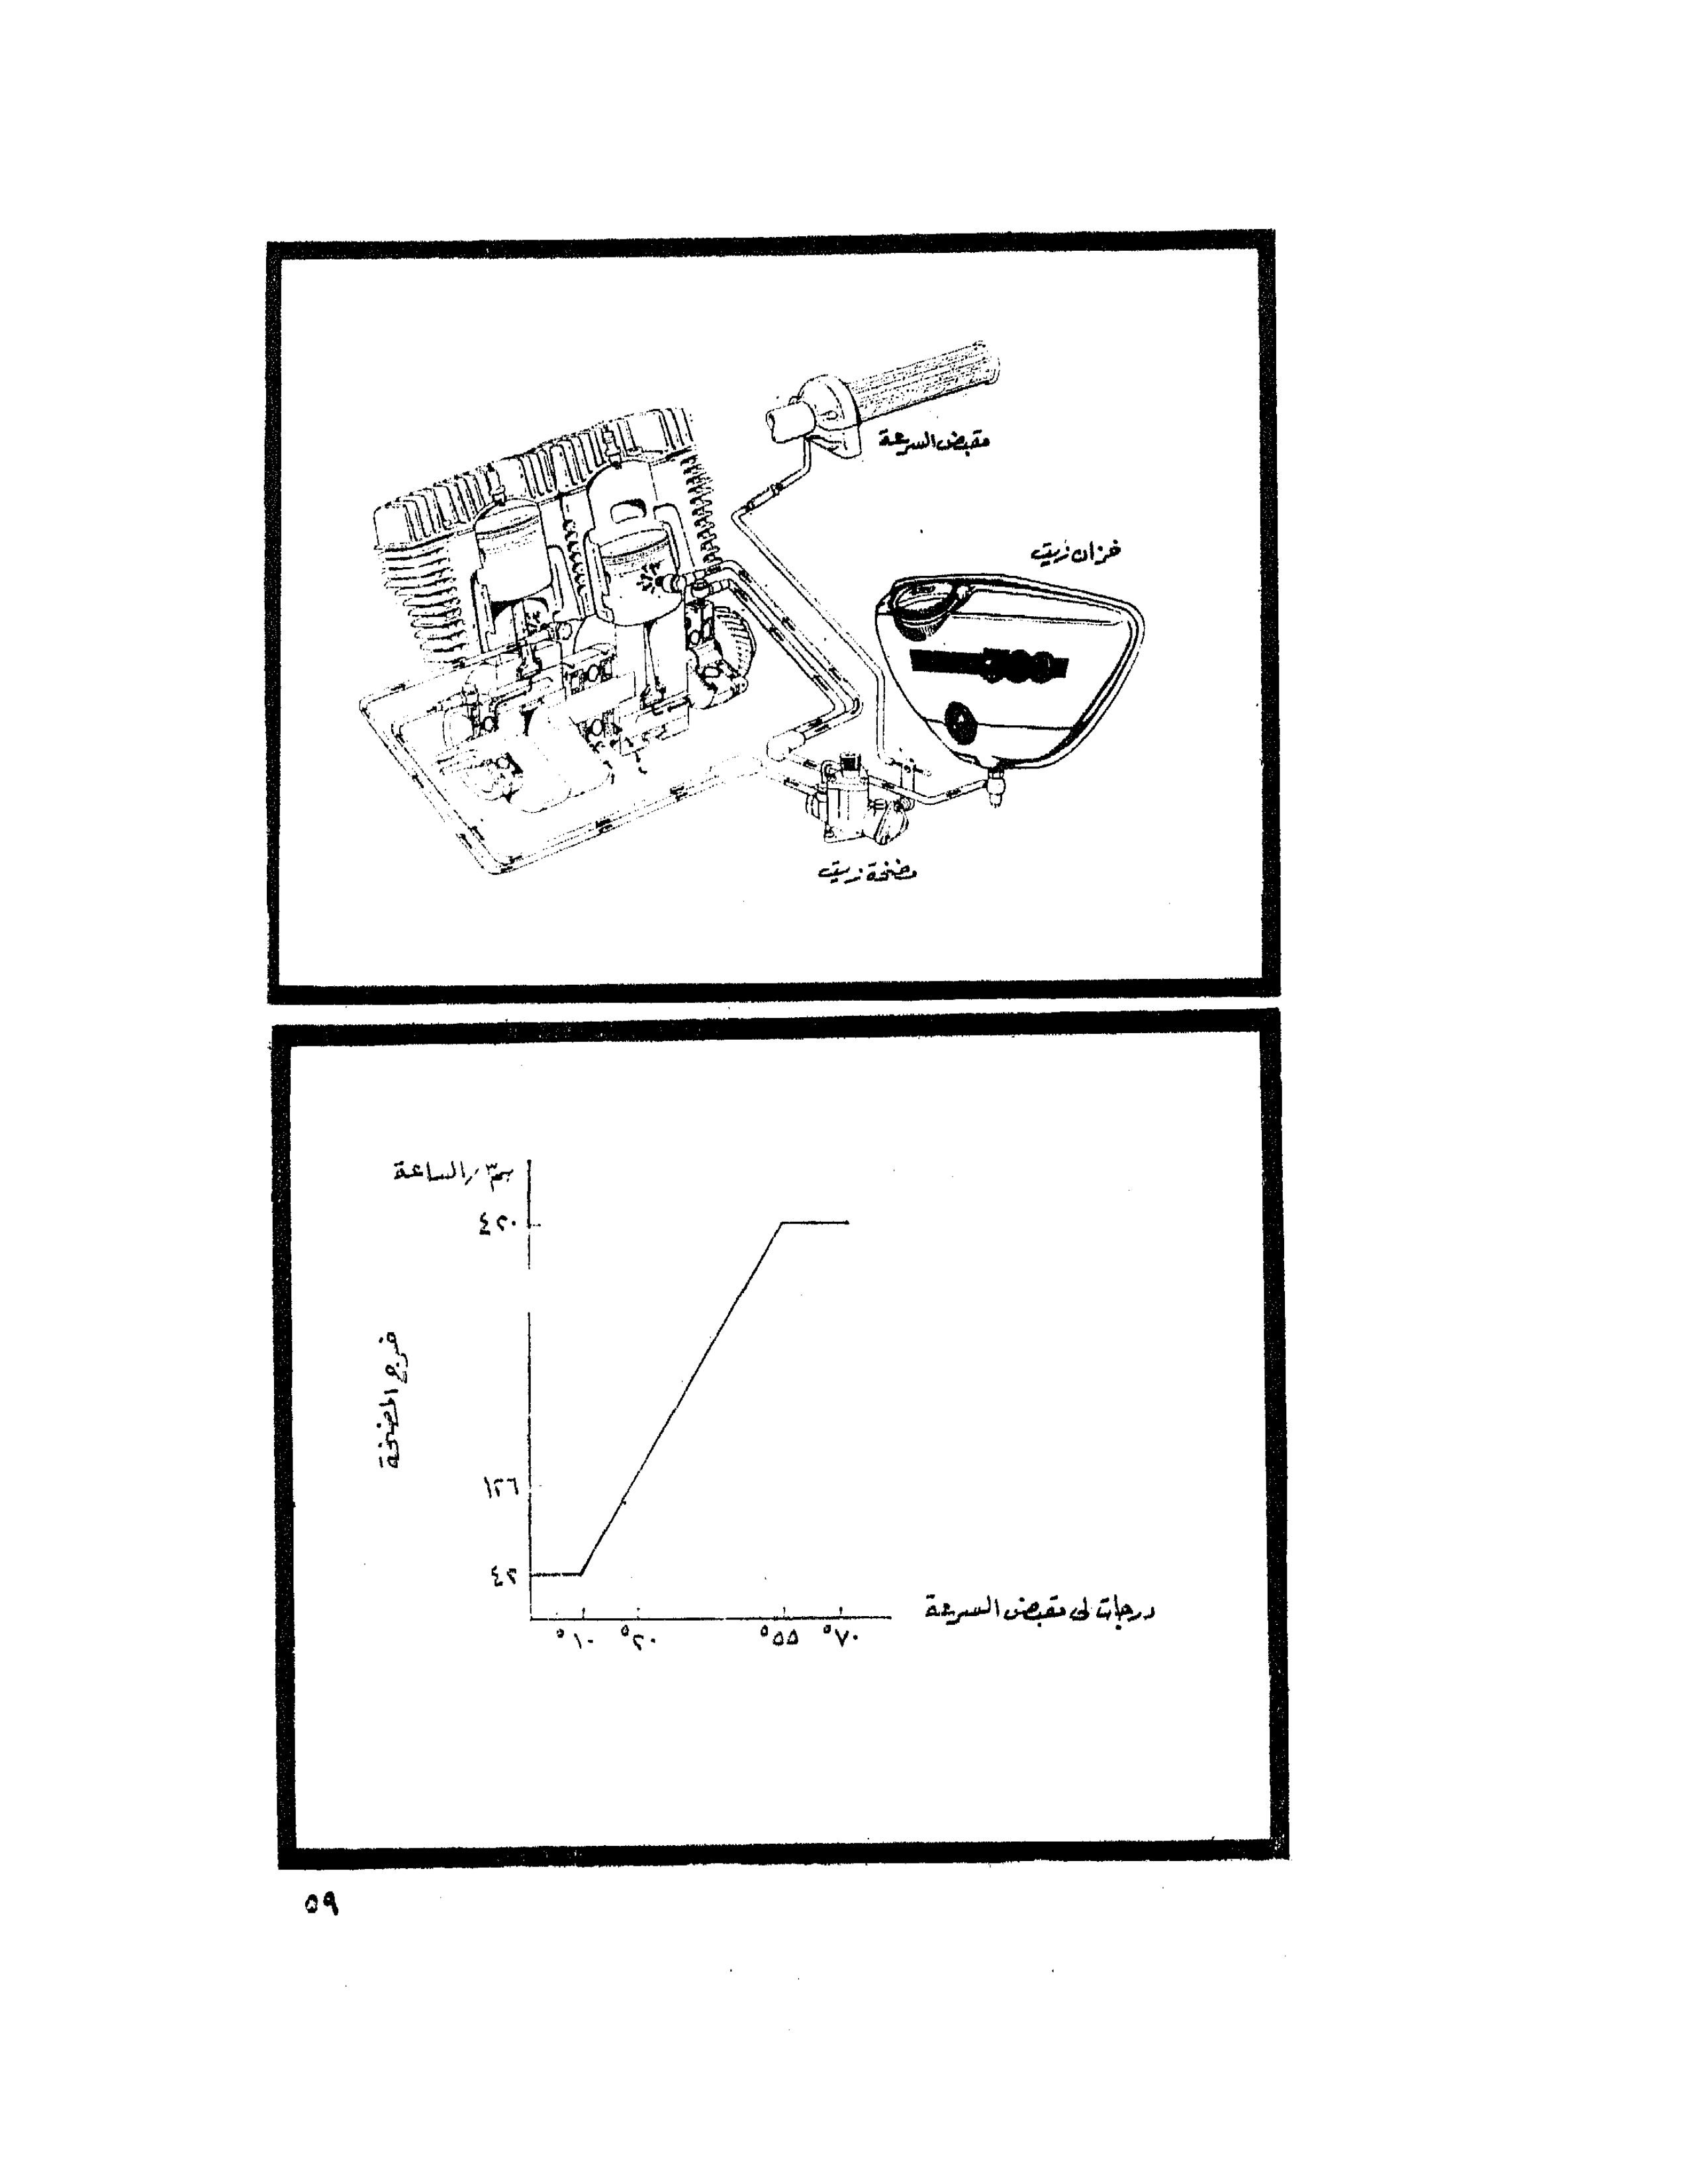 مقبض السرعة
خزان زيت
مضخة زيت
سم٣/الساعة
٤٢٠
خرج المضخة
١٢٦
٤٢
درجات لى مقبض السرعة
١٠° ٢٠° ٥٥° ٧٠°
٥٩